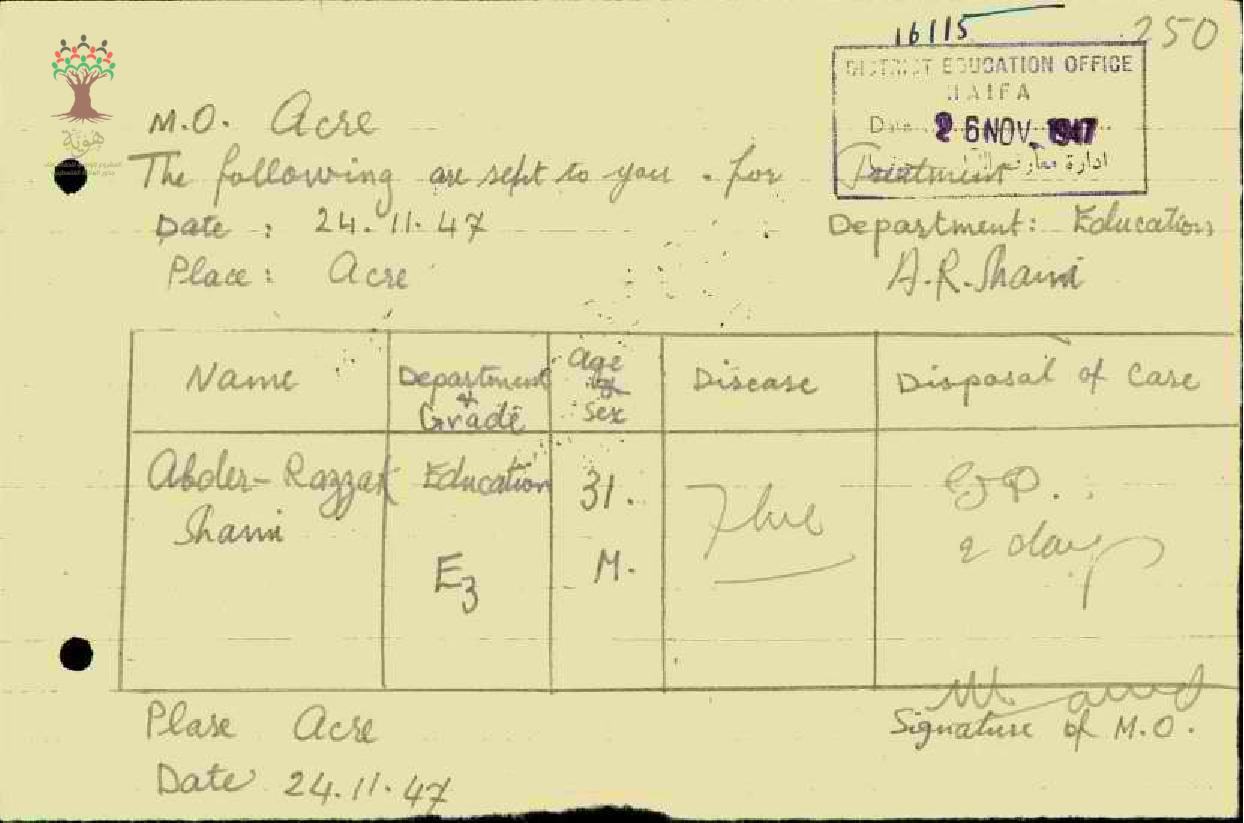 16115
250
DISTRICT EDUCATION OFFICE
HAIFA
Date 26 NOV. 1947
ادارة معارف
هوية
M.O. Acre
The following are sept to you . for Treatment
Date : 24.11.47
Department: Education
Place : Acre
A.R. Shami
Name
Department & Grade
Age & Sex
Disease
Disposal of Case
Abder-Razzak Shami
Education
E3
31.
M.
Flue
2 days
Signature of M.O.
Plase Acre
Date 24.11.47